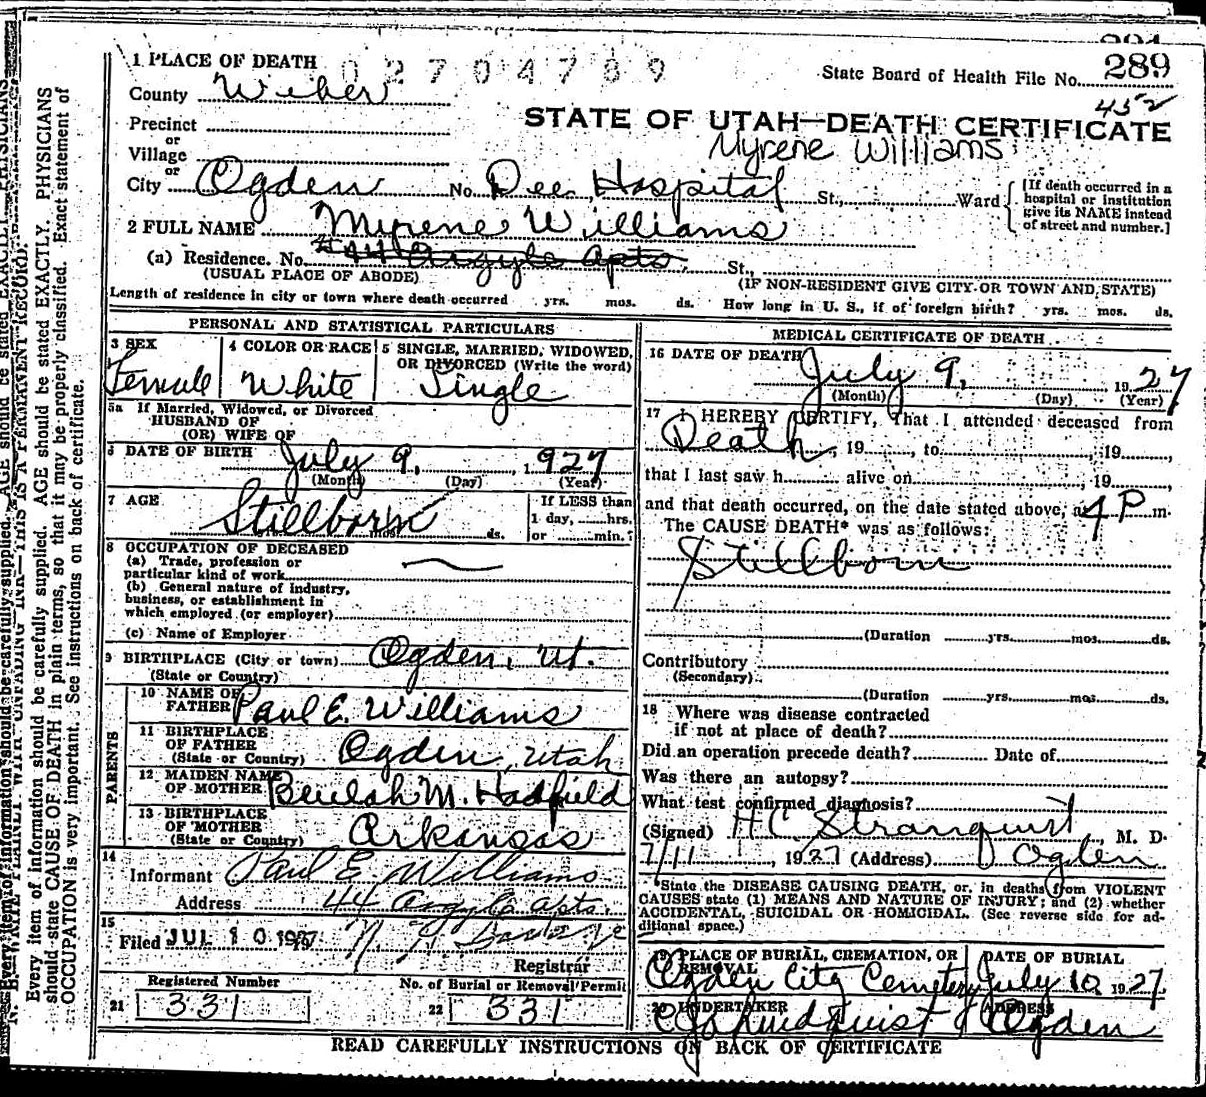 289
1 PLACE OF DEATH 02704789 State Board of Health File No. 289
County Weber 452
Precinct STATE OF UTAH—DEATH CERTIFICATE
or Myrene Williams
Village
or
City Ogden No. Dee Hospital St., Ward [If death occurred in a hospital or institution give its NAME instead of street and number.]
2 FULL NAME Myrene Williams
(a) Residence. No. 44 Argyle Apts. St.,
(USUAL PLACE OF ABODE) (IF NON-RESIDENT GIVE CITY OR TOWN AND STATE)
Length of residence in city or town where death occurred yrs. mos. ds. How long in U. S., if of foreign birth? yrs. mos. ds.
PERSONAL AND STATISTICAL PARTICULARS
3 SEX 4 COLOR OR RACE 5 SINGLE, MARRIED, WIDOWED, OR DIVORCED (Write the word)
Female White Single
5a If Married, Widowed, or Divorced
HUSBAND OF
(OR) WIFE OF
6 DATE OF BIRTH July 9, 1927
(Month) (Day) (Year)
7 AGE Stillborn mos. ds. If LESS than 1 day, hrs. or min.?
8 OCCUPATION OF DECEASED
(a) Trade, profession or
particular kind of work
(b) General nature of industry,
business, or establishment in
which employed (or employer)
(c) Name of Employer
9 BIRTHPLACE (City or town) Ogden, Ut.
(State or Country)
PARENTS
10 NAME OF FATHER Paul E. Williams
11 BIRTHPLACE OF FATHER (State or Country) Ogden, Utah
12 MAIDEN NAME OF MOTHER Beulah M. Hadfield
13 BIRTHPLACE OF MOTHER (State or Country) Arkansas
14 Informant Paul E Williams
Address 44 Argyle Apts.
15 Filed JUL 10 1927
Registrar
Registered Number No. of Burial or Removal Permit
21 331 22 331
MEDICAL CERTIFICATE OF DEATH
16 DATE OF DEATH July 9, 1927
(Month) (Day) (Year)
17 I HEREBY CERTIFY, That I attended deceased from
Death, 19, to, 19,
that I last saw h alive on, 19,
and that death occurred, on the date stated above, at 4 P m.
The CAUSE DEATH* was as follows:
Stillborn
(Duration yrs. mos. ds.
Contributory
(Secondary)
(Duration yrs. mos. ds.
18 Where was disease contracted
if not at place of death?
Did an operation precede death? Date of
Was there an autopsy?
What test confirmed diagnosis?
(Signed) H C Stranquist, M. D.
7/11, 1927 (Address) Ogden
*State the DISEASE CAUSING DEATH, or, in deaths from VIOLENT
CAUSES state (1) MEANS AND NATURE OF INJURY; and (2) whether
ACCIDENTAL, SUICIDAL OR HOMICIDAL. (See reverse side for additional space.)
19 PLACE OF BURIAL, CREMATION, OR REMOVAL DATE OF BURIAL
Ogden City Cemetery July 10 1927
20 UNDERTAKER ADDRESS
Lindquist Ogden
READ CAREFULLY INSTRUCTIONS ON BACK OF CERTIFICATE
N. B. WRITE PLAINLY WITH UNFADING INK—THIS IS A PERMANENT RECORD.
Every item of information should be carefully supplied. AGE should be stated EXACTLY. PHYSICIANS
should state CAUSE OF DEATH in plain terms, so that it may be properly classified. Exact statement of
OCCUPATION is very important. See instructions on back of certificate.